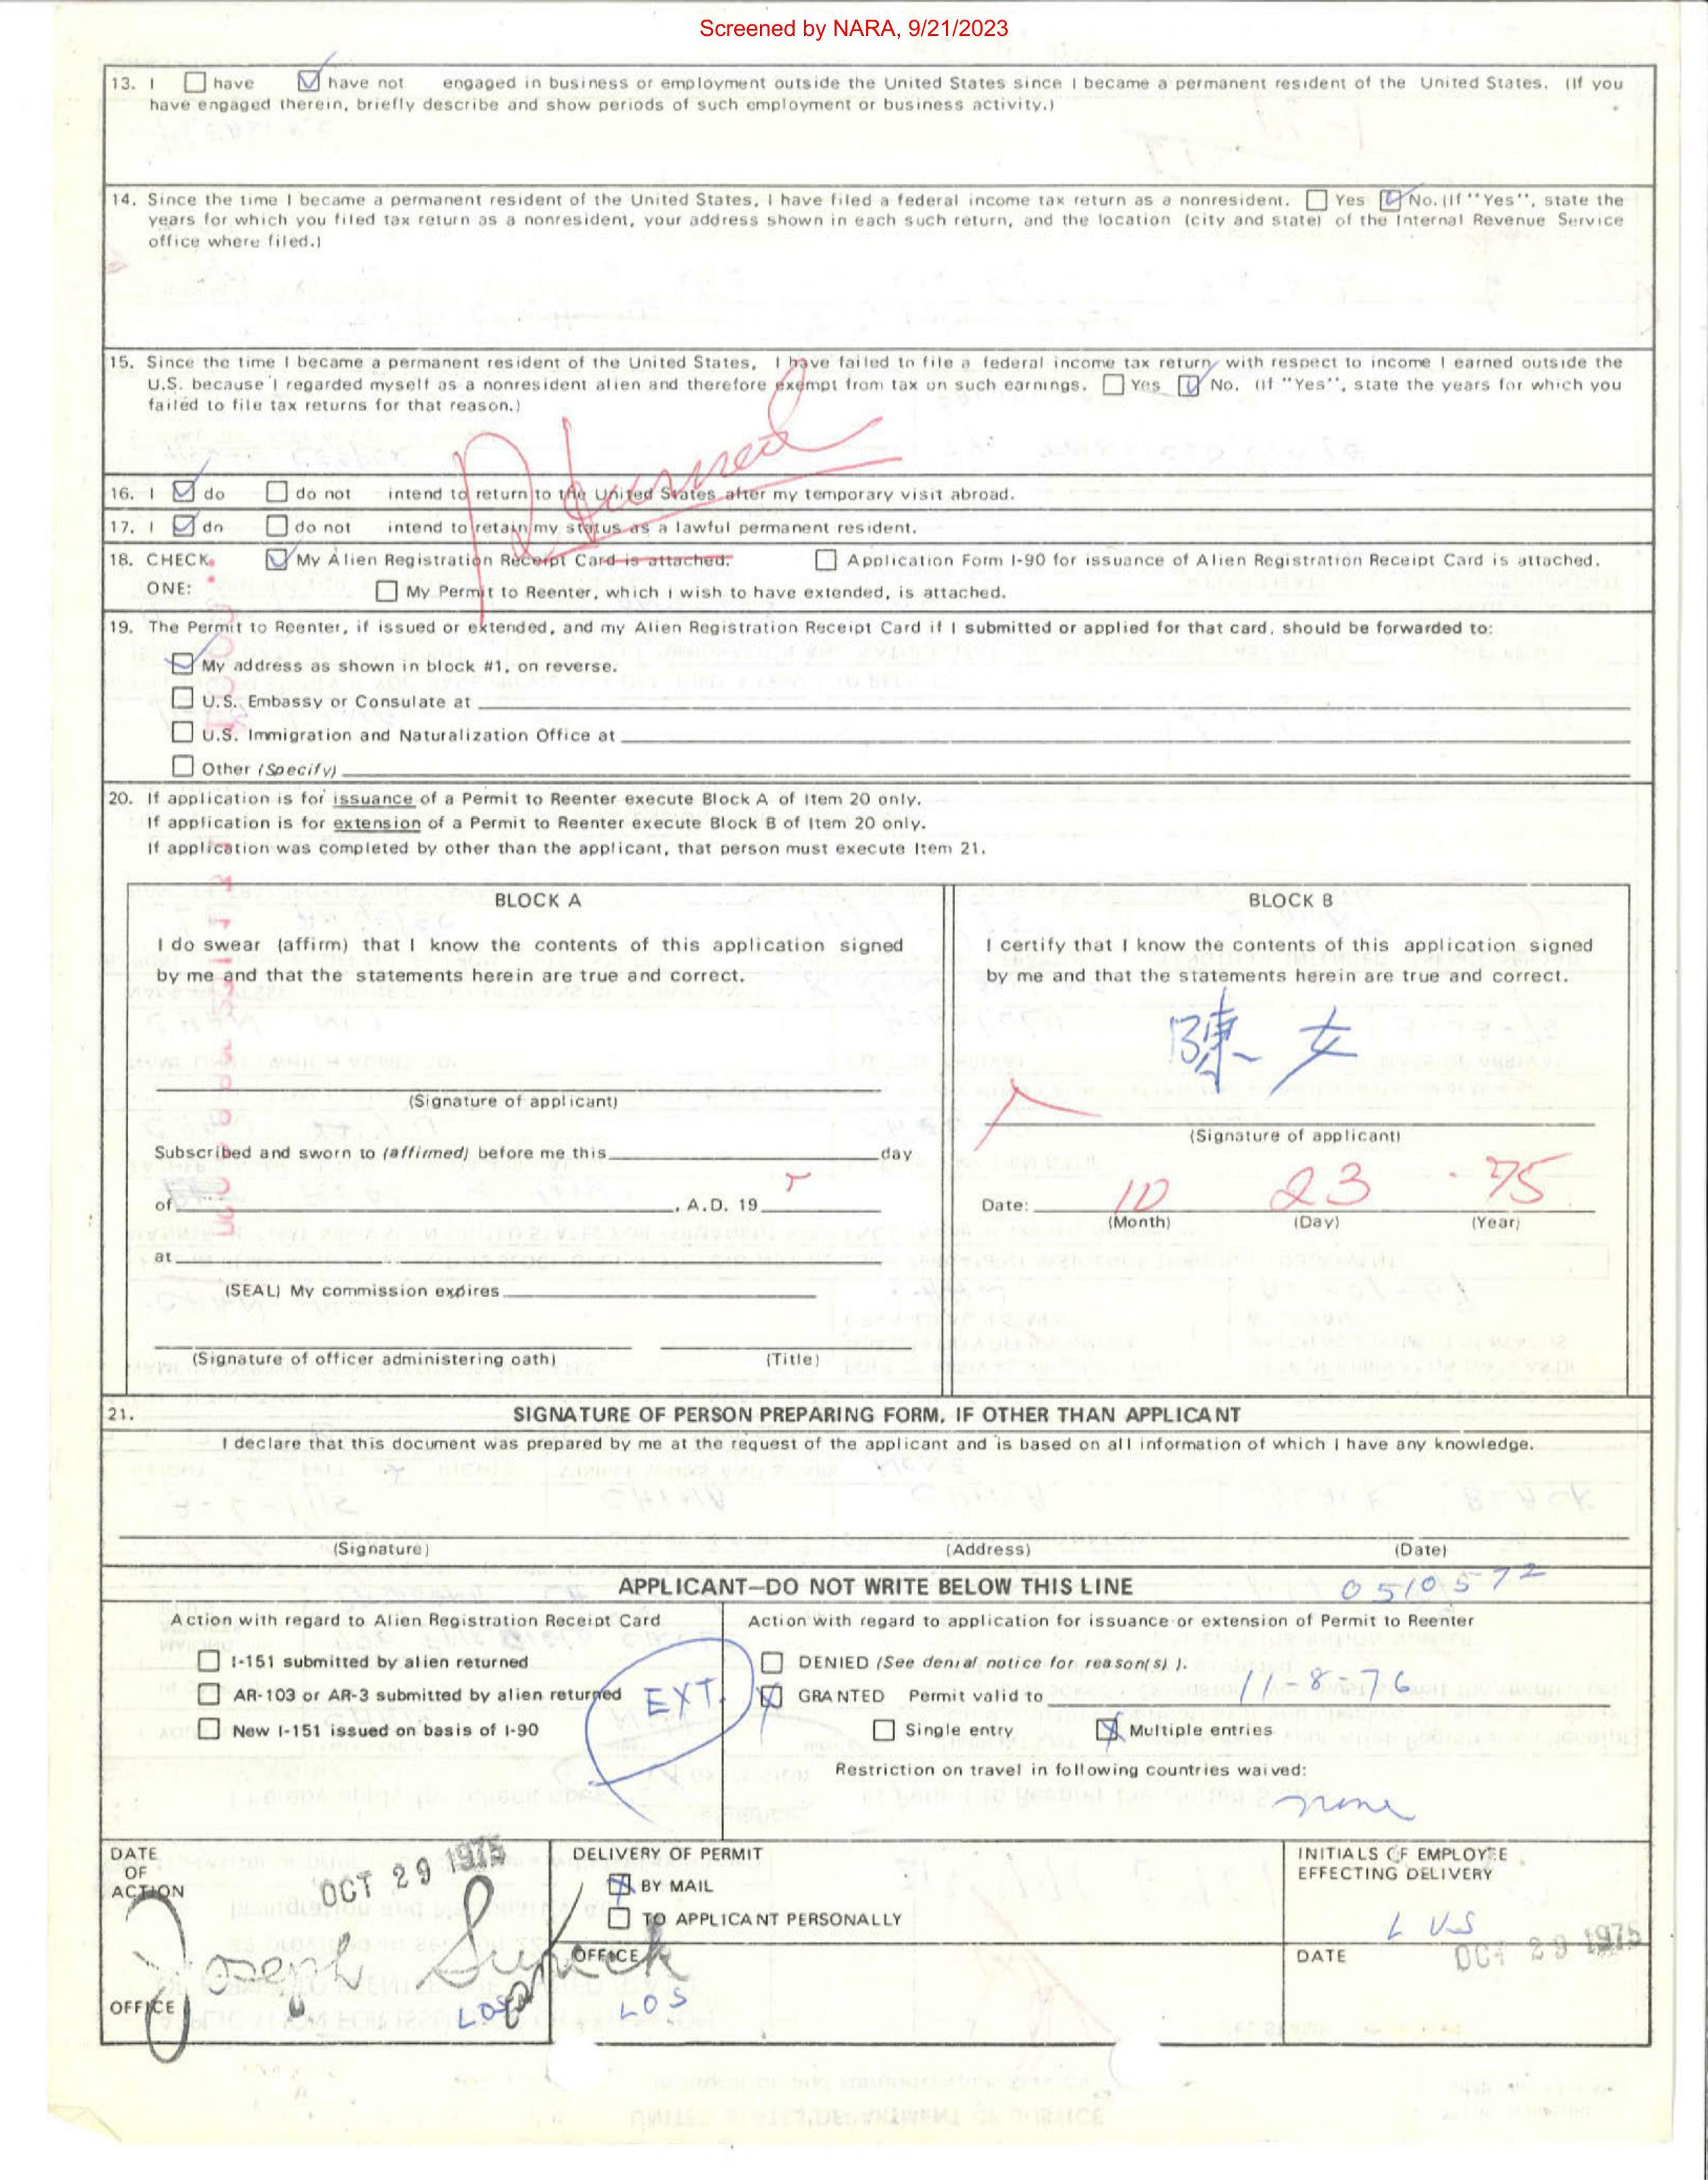 Screened by NARA, 9/21/2023
13. I have have not engaged in business or employment outside the United States since I became a permanent resident of the United States. (If you
have engaged therein, briefly describe and show periods of such employment or business activity.)
14. Since the time I became a permanent resident of the United States, I have filed a federal income tax return as a nonresident. Yes No. (If "Yes", state the
years for which you filed tax return as a nonresident, your address shown in each such return, and the location (city and state) of the Internal Revenue Service
office where filed.)
15. Since the time I became a permanent resident of the United States, I have failed to file a federal income tax return with respect to income I earned outside the
U.S. because I regarded myself as a nonresident alien and therefore exempt from tax on such earnings. Yes No. (If "Yes", state the years for which you
failed to file tax returns for that reason.)
16. I do do not intend to return to the United States after my temporary visit abroad.
17. I do do not intend to retain my status as a lawful permanent resident.
18. CHECK My Alien Registration Receipt Card is attached. Application Form I-90 for issuance of Alien Registration Receipt Card is attached.
ONE: My Permit to Reenter, which I wish to have extended, is attached.
19. The Permit to Reenter, if issued or extended, and my Alien Registration Receipt Card if I submitted or applied for that card, should be forwarded to:
My address as shown in block #1, on reverse.
U.S. Embassy or Consulate at
U.S. Immigration and Naturalization Office at
Other (Specify)
20. If application is for issuance of a Permit to Reenter execute Block A of Item 20 only.
If application is for extension of a Permit to Reenter execute Block B of Item 20 only.
If application was completed by other than the applicant, that person must execute Item 21.
BLOCK A
I do swear (affirm) that I know the contents of this application signed
by me and that the statements herein are true and correct.
(Signature of applicant)
Subscribed and sworn to (affirmed) before me this day
of , A.D. 19
at
(SEAL) My commission expires
(Signature of officer administering oath) (Title)
BLOCK B
I certify that I know the contents of this application signed
by me and that the statements herein are true and correct.
陳 女
(Signature of applicant)
Date: 10 23 75
(Month) (Day) (Year)
21. SIGNATURE OF PERSON PREPARING FORM, IF OTHER THAN APPLICANT
I declare that this document was prepared by me at the request of the applicant and is based on all information of which I have any knowledge.
(Signature) (Address) (Date)
APPLICANT—DO NOT WRITE BELOW THIS LINE 0510572
Action with regard to Alien Registration Receipt Card
I-151 submitted by alien returned
AR-103 or AR-3 submitted by alien returned
New I-151 issued on basis of I-90
EXT.
Action with regard to application for issuance or extension of Permit to Reenter
DENIED (See denial notice for reason(s) ).
GRANTED Permit valid to 11-8-76
Single entry Multiple entries
Restriction on travel in following countries waived:
none
DATE OF ACTION OCT 29 1975
Joseph
OFFICE LOS
DELIVERY OF PERMIT
BY MAIL
TO APPLICANT PERSONALLY
OFFICE
LOS
INITIALS OF EMPLOYEE
EFFECTING DELIVERY
LVS
DATE OCT 29 1975